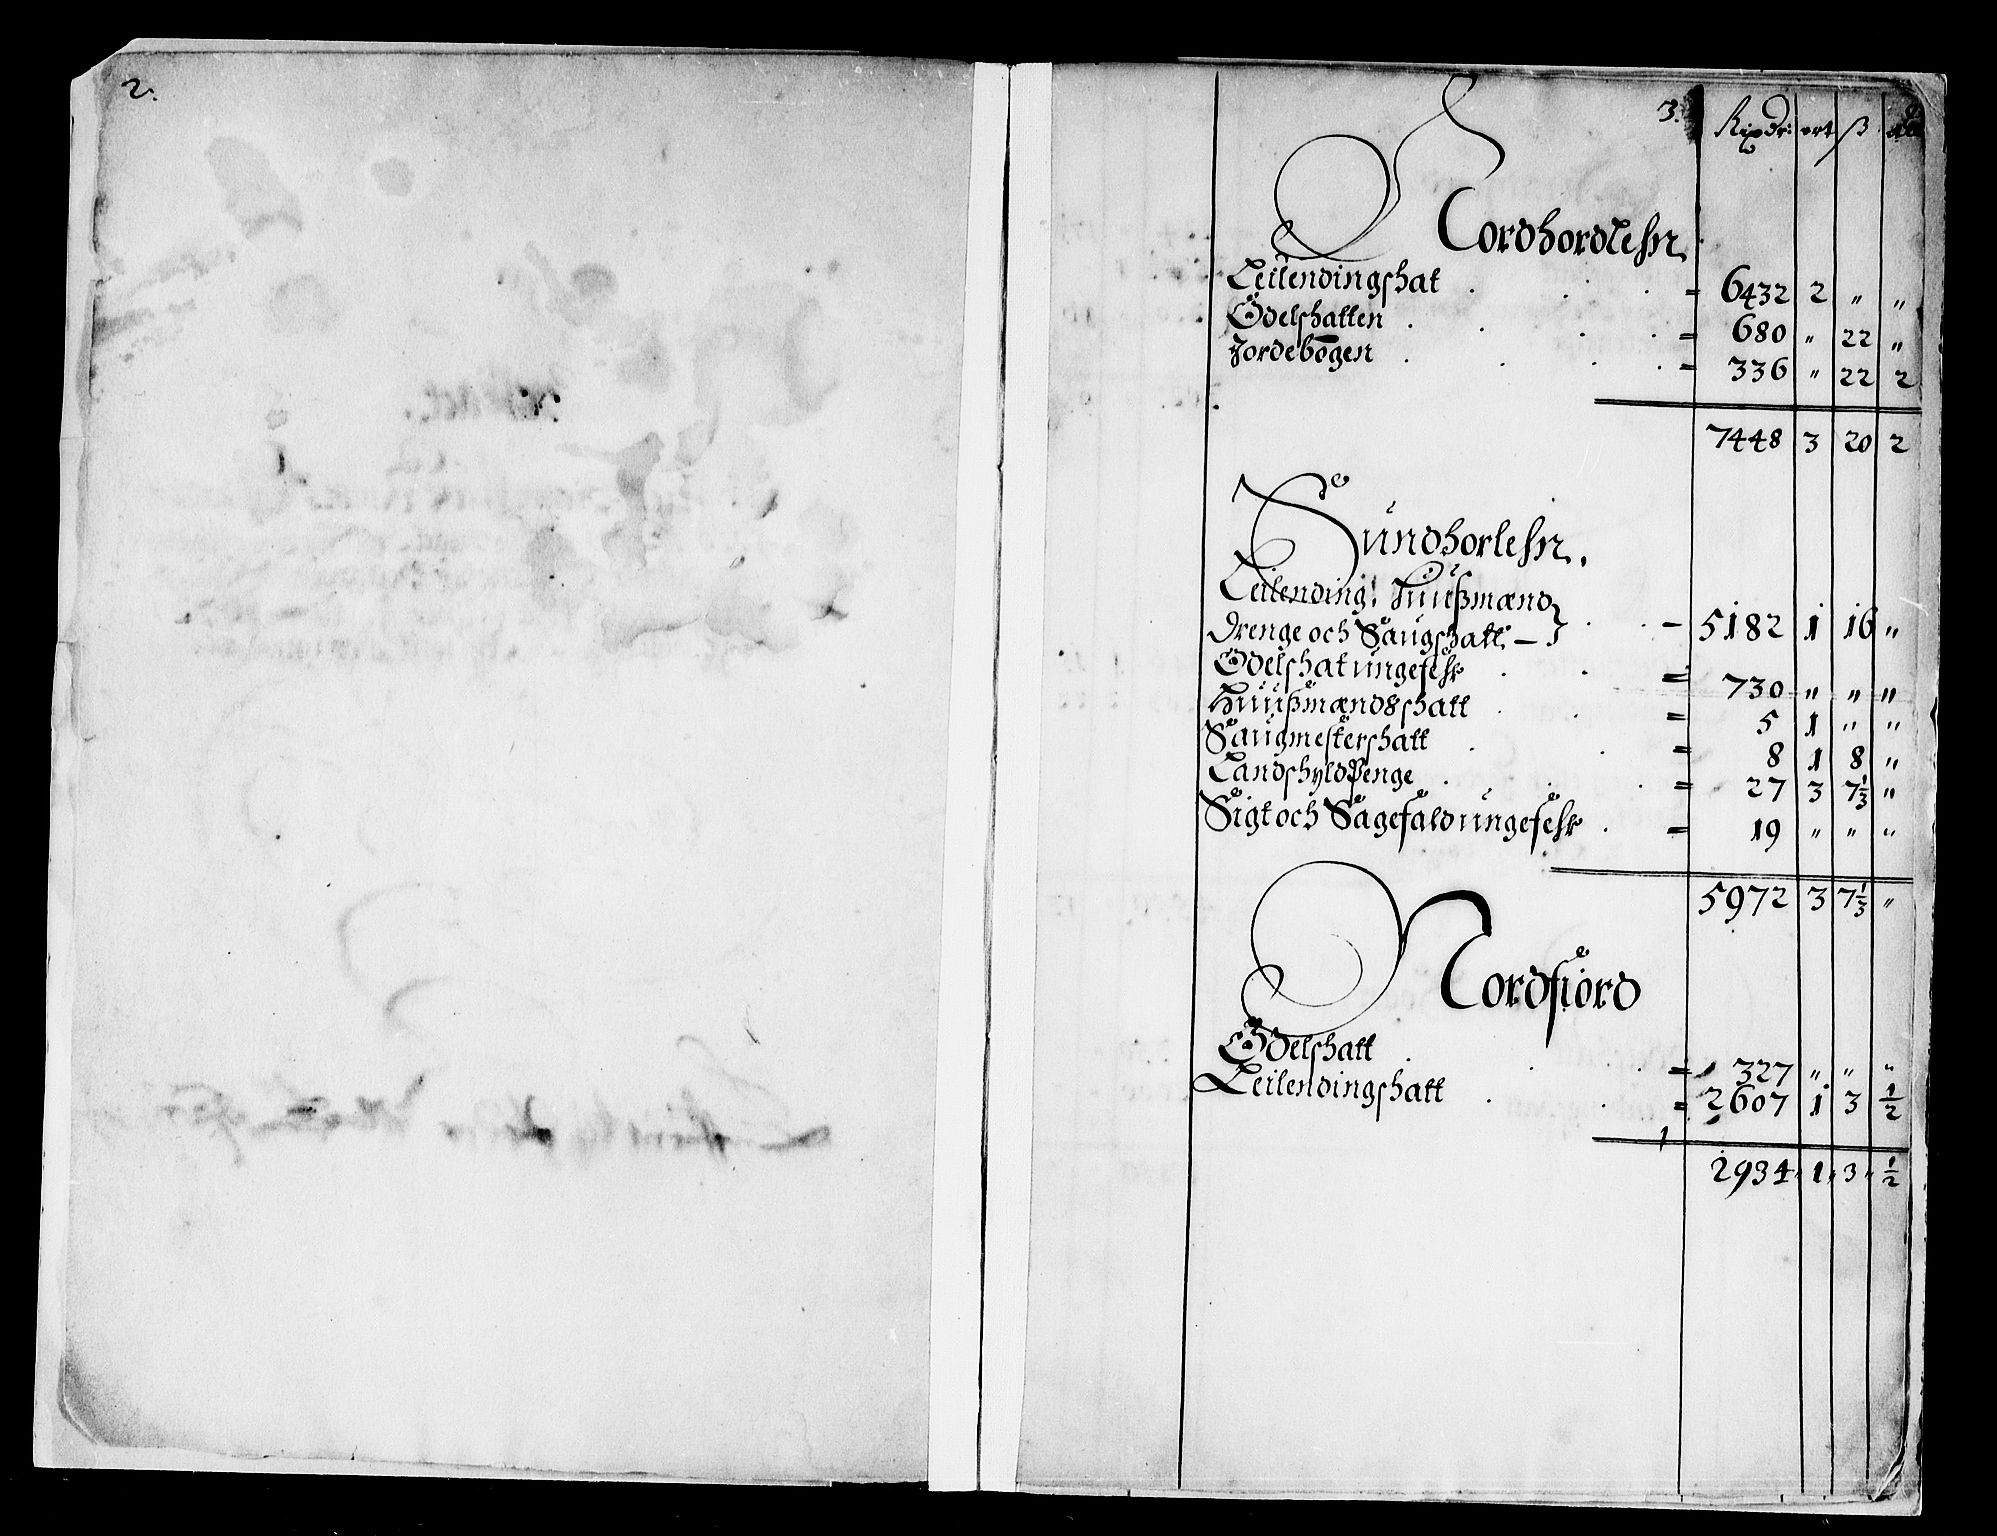 2.
3. Rixdr: ort ß
Nordhordlehn
Leilendingshat . . . = 6432 2 „ „
Odelshatten . . . = 680 „ 22 „
Jordebogen . . . = 336 „ 22 2
7448 3 20 2
Sundhorlehn.
Leilending, Huußmænd
Drenge och Saugshatt. — 5182 1 16 „
Odelshat ungefehr . . = 730 „ „ „
Huußmændsshatt . . = 5 1 „ „
Saugmestershatt . . = 8 1 8 „
Landshyld Penge . . = 27 3 7⅓ „
Sigt och Sagefald ungefehr . = 19 „ „ „
5972 3 7⅓ „
Nordfiord
Odelshatt . . . = 327 „ „ „
Leilendingshatt . . = 2607 1 3 ½
2934 1 3 ½